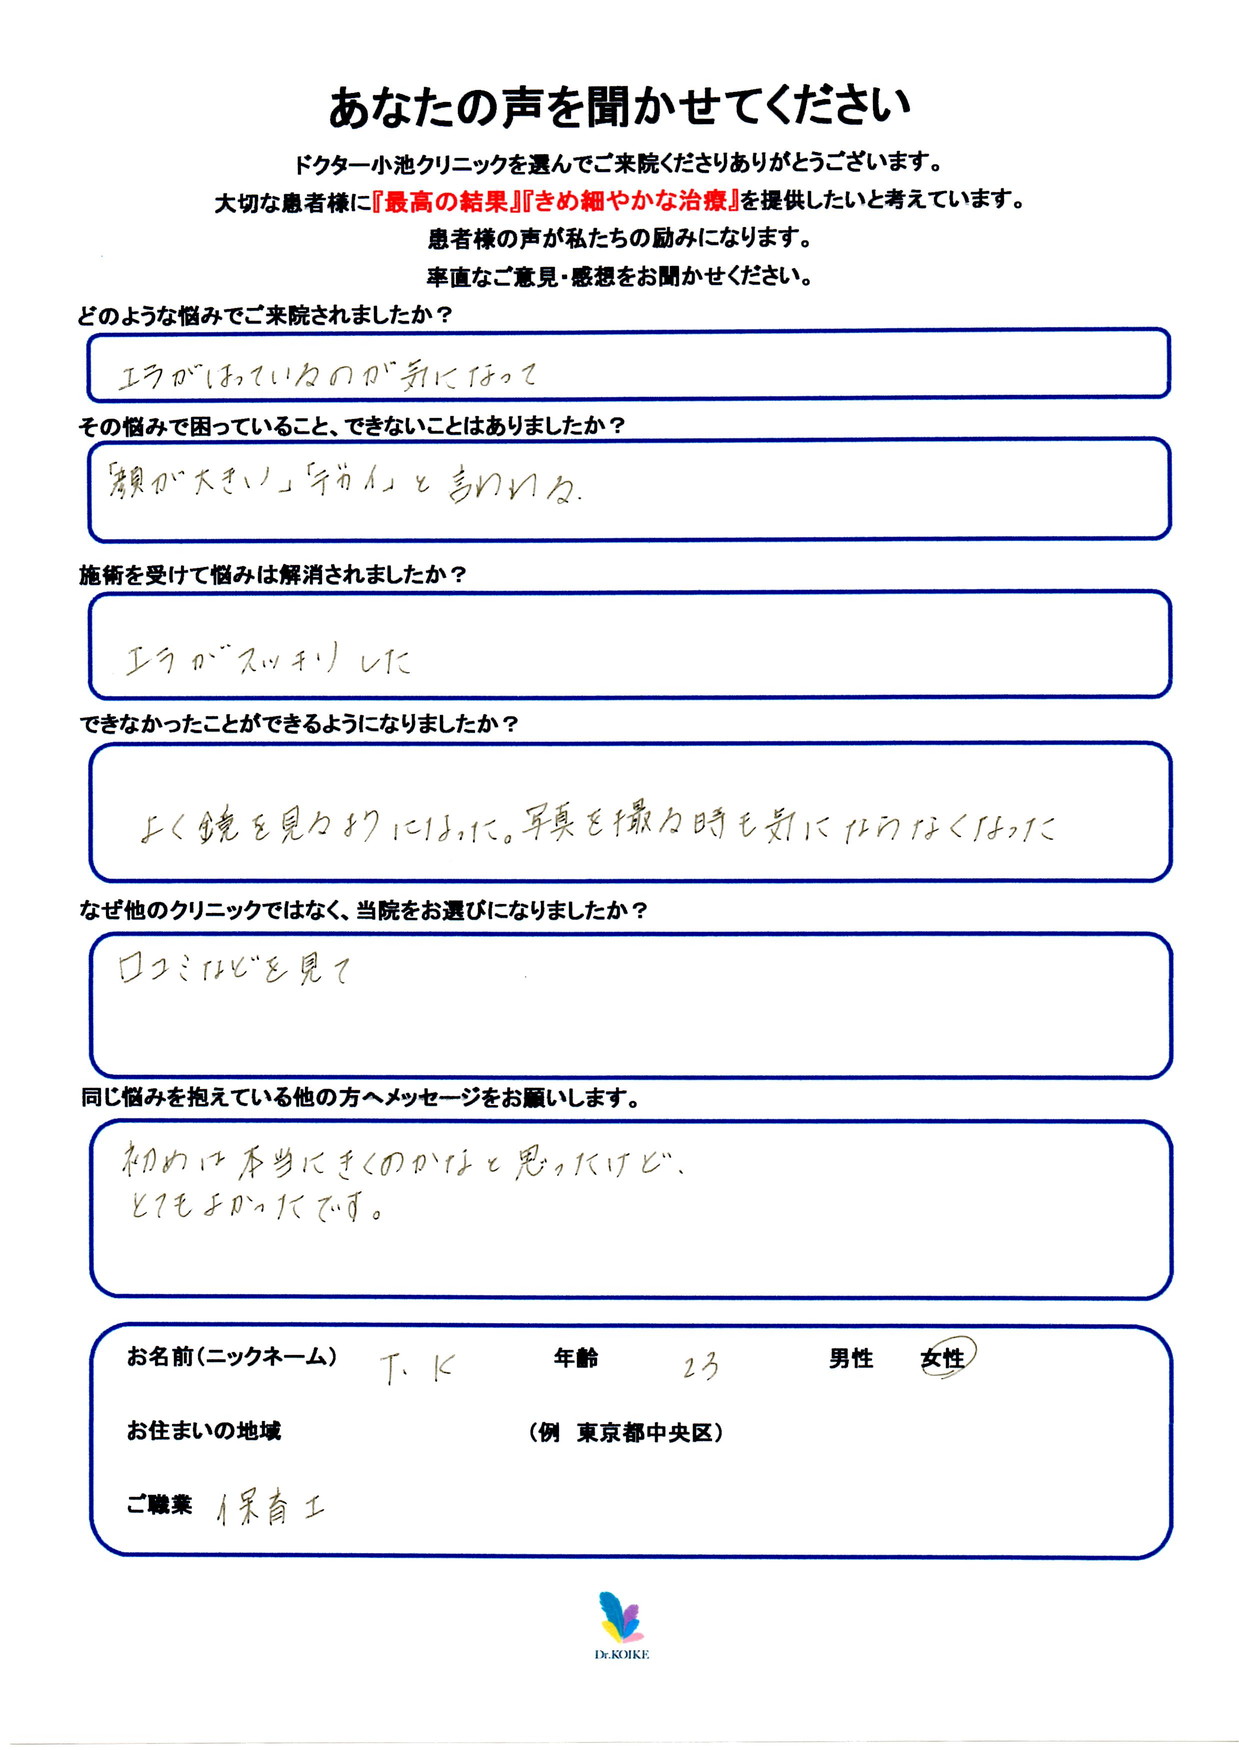 あなたの声を聞かせてください
ドクター小池クリニックを選んでご来院くださりありがとうございます。
大切な患者様に『最高の結果』『きめ細やかな治療』を提供したいと考えています。
患者様の声が私たちの励みになります。
率直なご意見・感想をお聞かせください。
どのような悩みでご来院されましたか？
エラがはっているのが気になって
その悩みで困っていること、できないことはありましたか？
「顔が大きい」「デカイ」と言われる.
施術を受けて悩みは解消されましたか？
エラがスッキリした
できなかったことができるようになりましたか？
よく鏡を見るようになった。写真を撮る時も気にならなくなった
なぜ他のクリニックではなく、当院をお選びになりましたか？
口コミなどを見て
同じ悩みを抱えている他の方へメッセージをお願いします。
初めは本当にきくのかなと思ったけど、
とてもよかったです。
お名前（ニックネーム） T. K 年齢 23 男性 女性
お住まいの地域 （例 東京都中央区）
ご職業 保育士
Dr.KOIKE